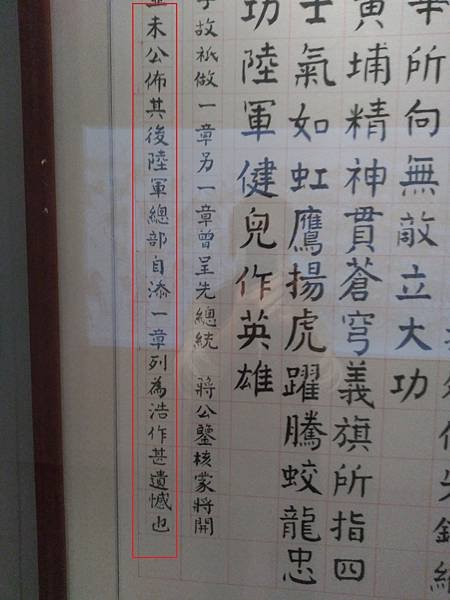 華所向無敵立大功
黃埔精神貫蒼穹義旗所指四
士氣如虹鷹揚虎躍騰蛟龍忠
功陸軍健兒作英雄
故祇做一章另一章曾呈先總統 蔣公鑒核蒙將開
未公佈其後陸軍總部自添一章列為浩作甚遺憾也